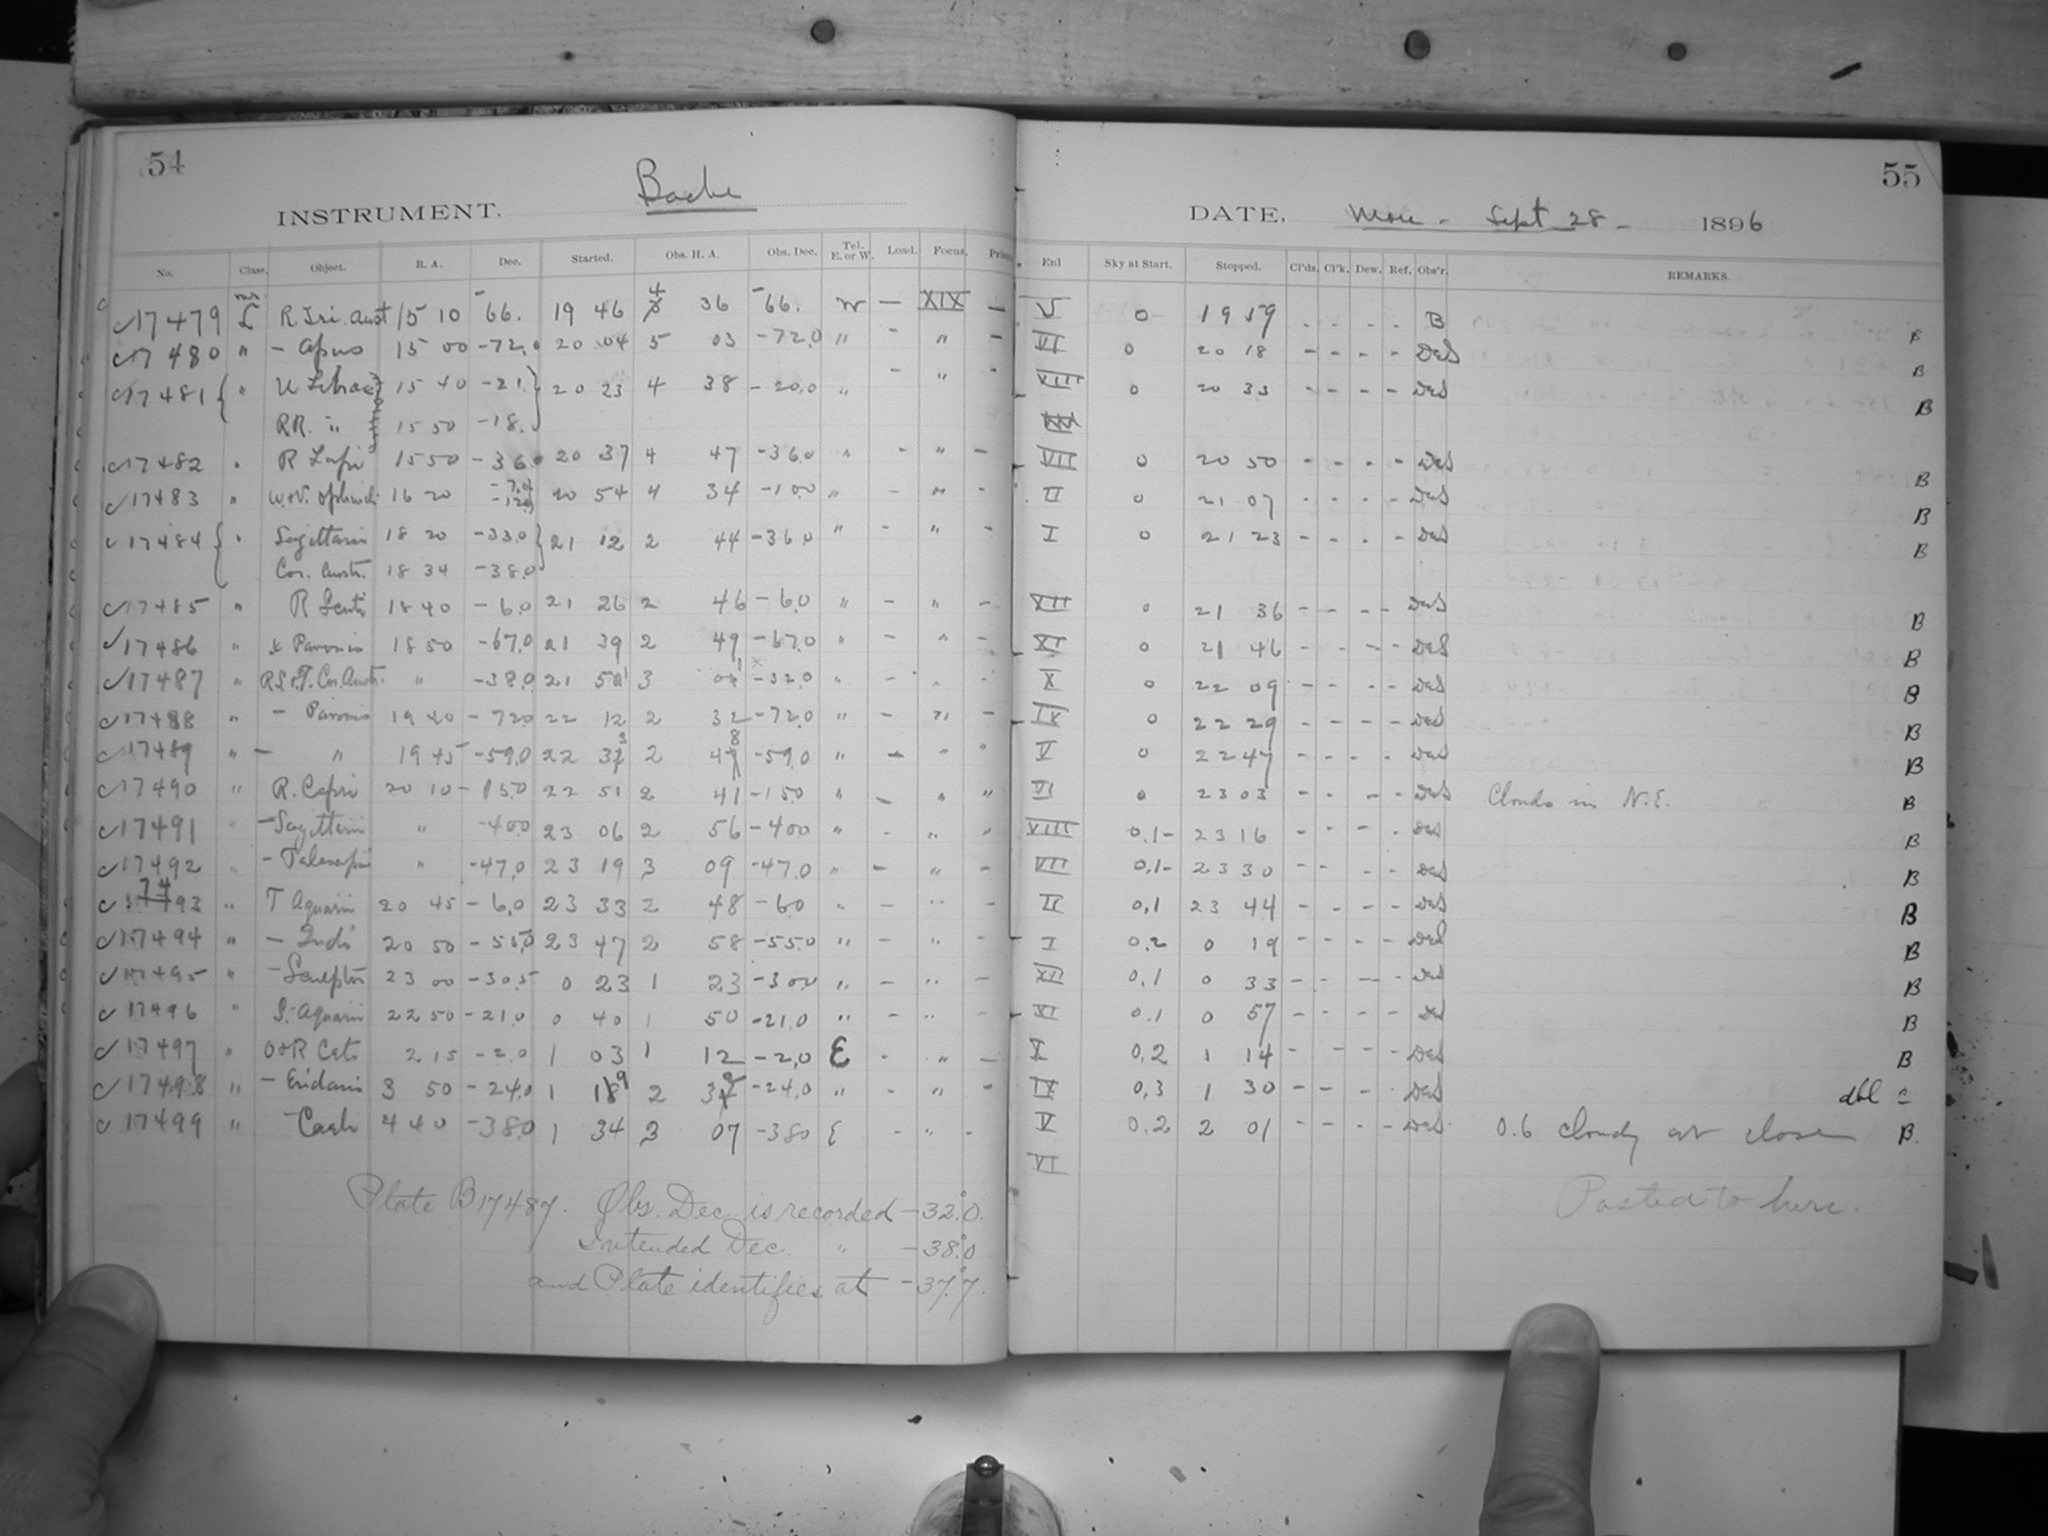 54
Bache
INSTRUMENT.
No. Class. Object. R. A. Dec. Started. Obs. H. A. Obs. Dec. Tel. E. or W. Load. Focus.
17479 L R Tri. Aust 15 10 -66. 19 46 4 36 -66. W — XIX —
17480 " - Apus 15 00 -72.0 20 04 5 03 -72.0 " - " -
17481 { " U Librae 15 40 -21. } 20 23 4 38 -20.0 " - " -
RR. " 15 50 -18.
17482 " R Lupi 15 50 -36.0 20 37 4 47 -36.0 " - " -
17483 " W.&V. Ophiuchi 16 20 -7.0 -12.0 20 54 4 34 -10.0 " - " -
17484 { " Sagittarii 18 20 -33.0 } 21 12 2 44 -36.0 " - " -
Cor. Austr. 18 34 -38.0
17485 " R Scuti 18 40 -6.0 21 26 2 46 -6.0 " - " -
17486 " κ Pavonis 18 50 -67.0 21 39 2 49 -67.0 " - " -
17487 " R.S.&T. Cor. Austr. " -38.0 21 51 3 01 -32.0 " - " -
17488 " - Pavonis 19 40 -72.0 22 12 2 32 -72.0 " - " -
17489 " — " 19 45 -59.0 22 33 2 48 -59.0 " - " "
17490 " R. Capri 20 10 -15.0 22 51 2 41 -15.0 " - " "
17491 " - Sagittarii " -40.0 23 06 2 56 -40.0 " - " "
17492 " - Telescopii " -47.0 23 19 3 09 -47.0 " - " "
17493 " T Aquarii 20 45 -6.0 23 33 2 48 -6.0 " - " -
17494 " - Indi 20 50 -55.0 23 47 2 58 -55.0 " - " -
17495 " - Sculptor 23 00 -30.5 0 23 1 23 -30.0 " - " -
17496 " S. Aquarii 22 50 -21.0 0 40 1 50 -21.0 " - " -
17497 " O&R Ceti 2 15 -2.0 1 03 1 12 -2.0 E - " -
17498 " - Eridani 3 50 -24.0 1 19 2 32 -24.0 " - " -
17499 " - Caeli 4 40 -38.0 1 34 3 07 -38.0 E - " -
Plate B17487. Obs. Dec. is recorded -32°.0.
Intended Dec. " -38°.0
and Plate identifies at -37°.7.
55
DATE, Mon - Sept 28 - 1896
Enl Sky at Start. Stopped. Cl'ds. Cl'k. Dew. Ref. Obs'r. REMARKS.
V 0 19 59 - - - - B B
VI 0 20 18 - - - - DeS B
VIII 0 20 33 - - - - DeS B
VII 0 20 50 - - - - DeS B
II 0 21 07 - - - - DeS B
I 0 21 23 - - - - DeS B
XII 0 21 36 - - - - DeS B
XI 0 21 46 - - - - DeS B
X 0 22 09 - - - - DeS B
IX 0 22 29 - - - - DeS B
V 0 22 47 - - - - DeS B
VI 0 23 03 - - - - DeS Clouds in N.E. B
VIII 0.1- 23 16 - - - - DeS B
VII 0.1- 23 30 - - - - DeS B
II 0.1 23 44 - - - - DeS B
I 0.2 0 19 - - - - DeS B
XII 0.1 0 33 - - - - DeS B
XI 0.1 0 57 - - - - DeS B
X 0.2 1 14 - - - - DeS B
IX 0.3 1 30 - - - - DeS dbl c
V 0.2 2 01 - - - - DeS 0.6 cloudy at close B.
VI
Posted to here.